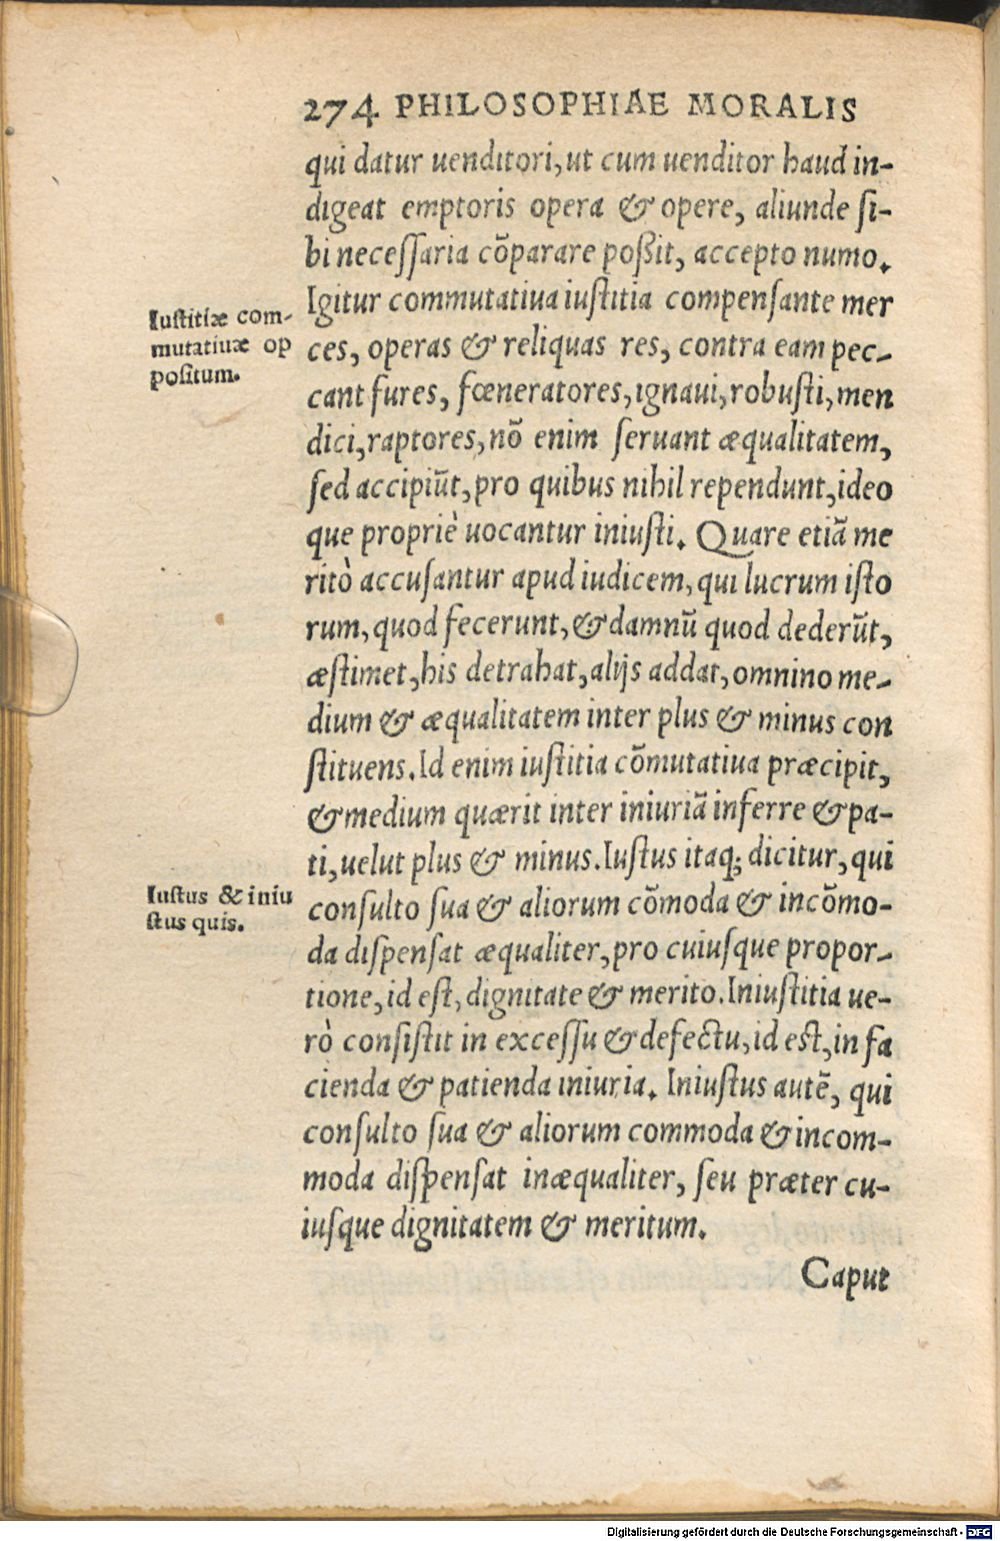 274 PHILOSOPHIAE MORALIS
qui datur uenditori, ut cum uenditor haud in-
digeat emptoris opera & opere, aliunde ſi-
bi neceſſaria cōparare poßit, accepto numo.
Igitur commutatiua iuſtitia compenſante mer
ces, operas & reliquas res, contra eam pec-
cant fures, fœneratores, ignaui, robuſti, men
dici, raptores, nō enim ſeruant æqualitatem,
ſed accipiūt, pro quibus nihil rependunt, ideo
que propriè uocantur iniuſti. Quare etiã me
ritò accuſantur apud iudicem, qui lucrum iſto
rum, quod fecerunt, & damnū quod dederūt,
æſtimet, his detrahat, alijs addat, omnino me-
dium & æqualitatem inter plus & minus con
ſtituens. Id enim iuſtitia cōmutatiua præcipit,
& medium quærit inter iniuriã inferre & pa-
ti, uelut plus & minus. Iuſtus itaq; dicitur, qui
conſulto ſua & aliorum cōmoda & incōmo-
da diſpenſat æqualiter, pro cuiuſque propor-
tione, id eſt, dignitate & merito. Iniuſtitia ue-
rò conſiſtit in exceſſu & defectu, id eſt, in fa
cienda & patienda iniuria. Iniuſtus autē, qui
conſulto ſua & aliorum commoda & incom-
moda diſpenſat inæqualiter, ſeu præter cu-
iuſque dignitatem & meritum.
Caput
Iuſtitiæ com-
mutatiuæ op
poſitum.
Iuſtus & iniu
ſtus quis.
Digitalisierung gefördert durch die Deutsche Forschungsgemeinschaft - DFG